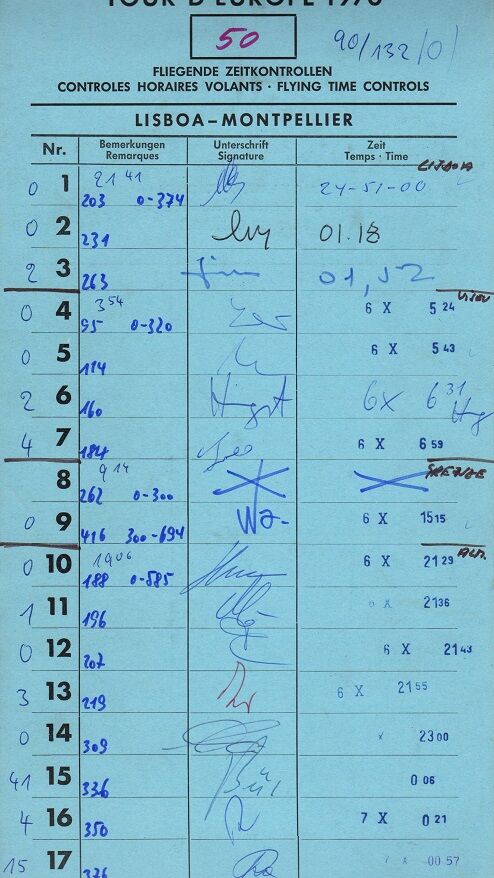 TOUR D'EUROPE 1970
50
90/132/0/
FLIEGENDE ZEITKONTROLLEN
CONTROLES HORAIRES VOLANTS · FLYING TIME CONTROLS
LISBOA–MONTPELLIER
Nr. Bemerkungen Remarques Unterschrift Signature Zeit Temps · Time
LISBOA
0 1 21 41 203 0-374 24-51-00
0 2 231 01.18
2 3 263 01,52
0 4 3 54 95 0-320 6 X 5 24
0 5 114 6 X 5 43
2 6 160 6X 6 31
4 7 184 6 X 6 59
8 9 14 262 0-300
0 9 416 300-694 6 X 15 15
0 10 19 06 188 0-585 6 X 21 29
1 11 196 6 X 21 36
0 12 207 6 X 21 43
3 13 219 6 X 21 55
0 14 309 X 23 00
41 15 336 0 06
4 16 350 7 X 0 21
15 17 376 7 X 00 57